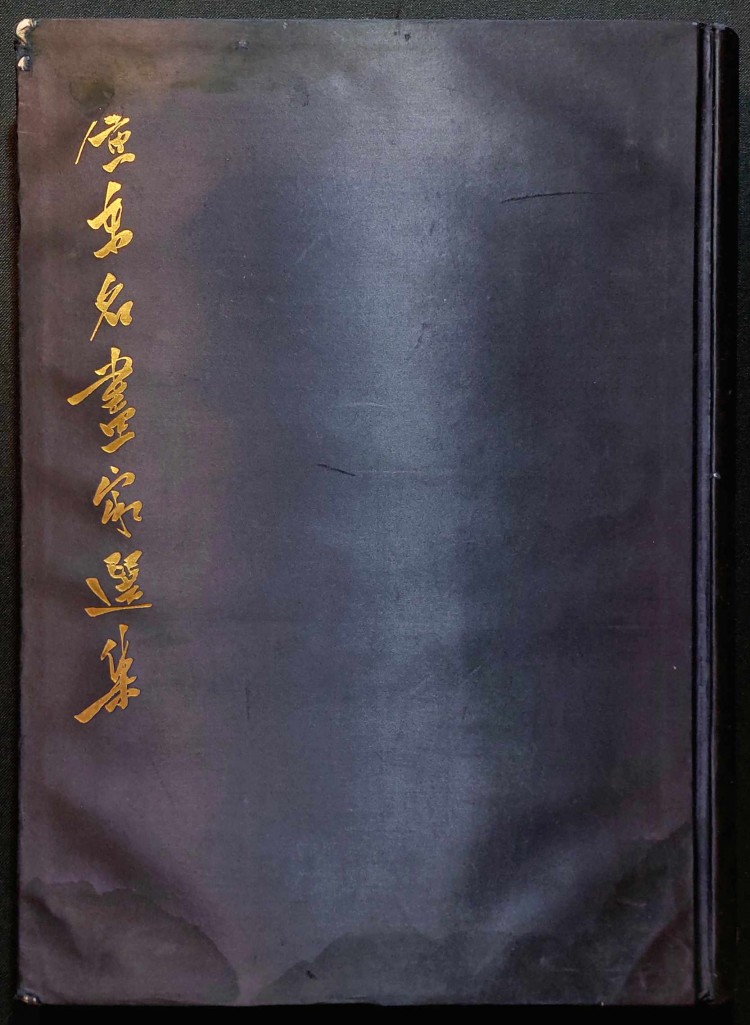 廣東名畫家選集